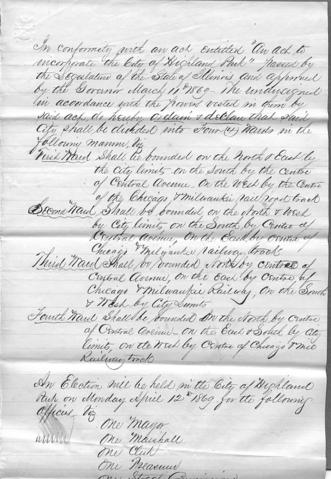 In conformity with an act entitled "An act to
incorporate the City of Highland Park" passed by
the Legislature of the State of Illinois and approved
by the Governor March 11th 1869. The undersigned
in accordance with the power vested in them by
said act, do hereby ordain & declare that said
City shall be divided into Four (4) Wards in the
following manner, viz
First Ward Shall be bounded on the North & East by
the City limits on the South by the Centre
of Central Avenue. On the West by the Centre
of the Chicago & Milwaukie rail road track
Second Ward Shall be bounded, on the North & West
by City limits, on the South by Centre of
Central Avenue, on the East by Centre of
Chicago & Milwaukie Railway track
Third Ward Shall be bounded North by Centre of
Central Avenue on the East by Centre of
Chicago & Milwaukie Railway, on the South
& West by City Limits
Fourth Ward Shall be bounded on the North by Centre
of Central Avenue on the East & South by City
limits, on the West by Centre of Chicago & Mil
Railway track
An Election will be held in the City of Highland
Park on Monday April 12th 1869 for the following
Officers, viz
One Mayor
One Marshall
One Clerk
One Treasurer
One Street